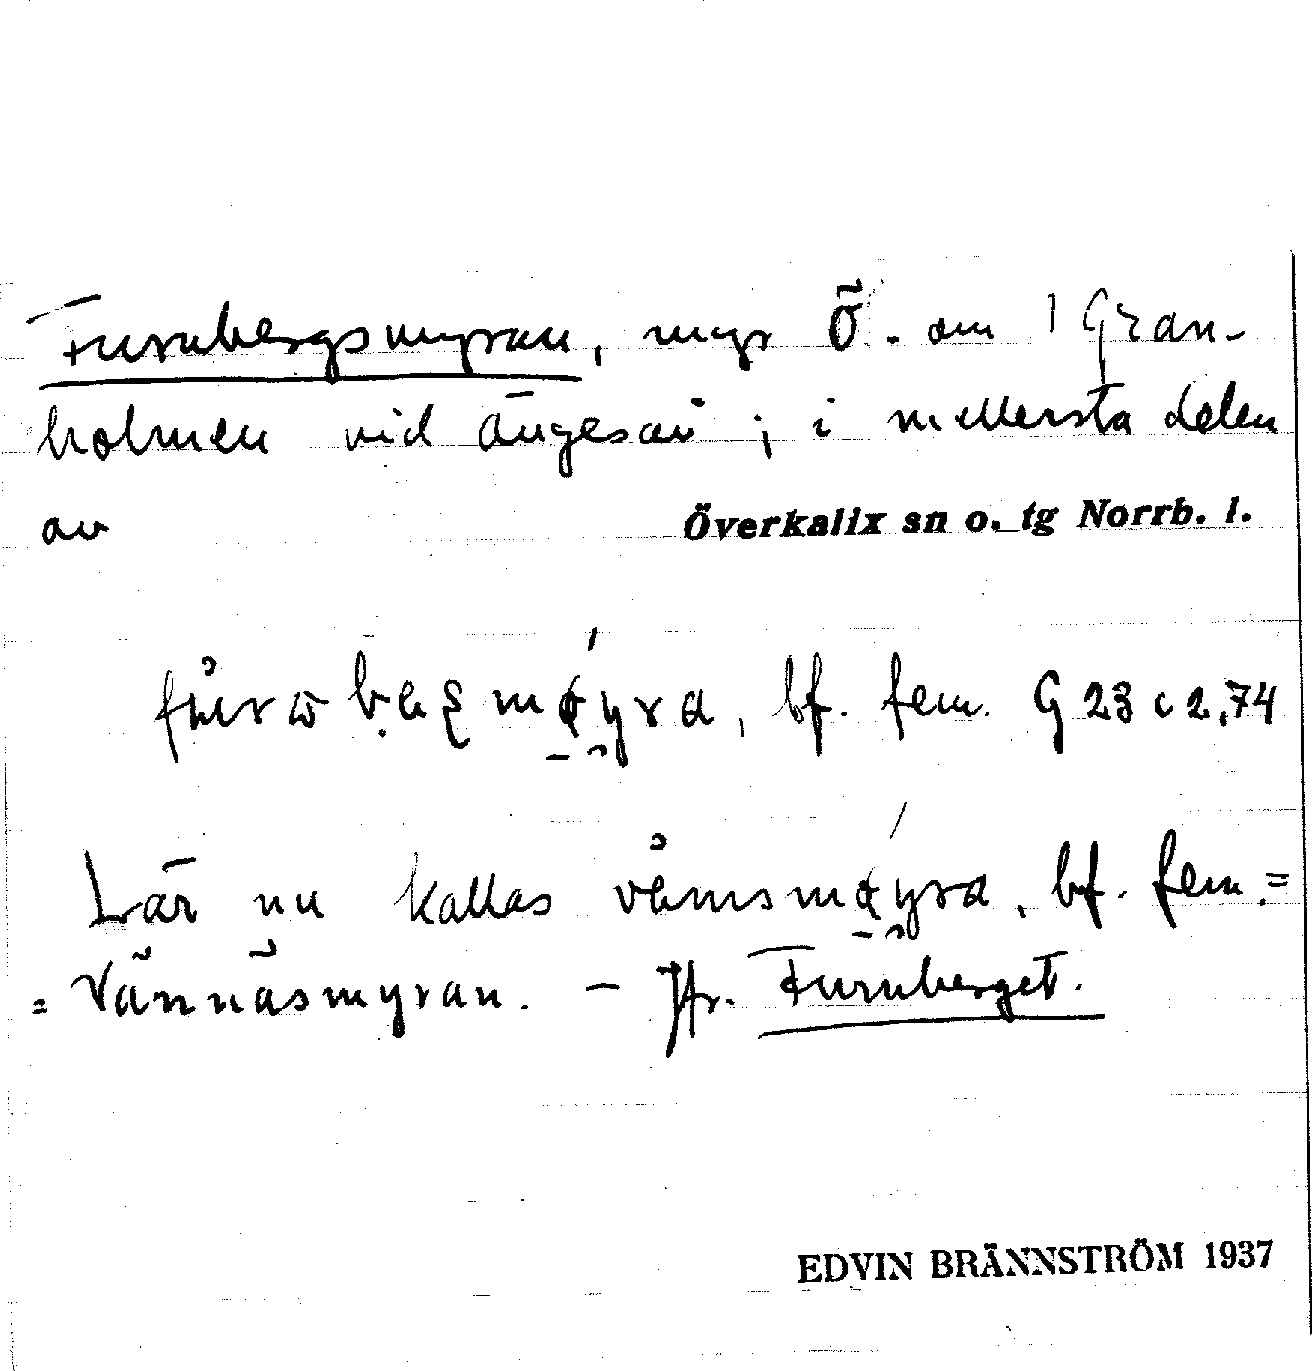 Furnbergsmyran, myr Ö. om Gran-
holmen vid Ängesån; i mellersta delen
av Överkalix sn o. tg Norrb. l.
bf. fem. G 23 c 2,74
Lär nu kallas bf. fem. =
= Vännäsmyran. – Jfr. Furnberget.
EDVIN BRÄNNSTRÖM 1937